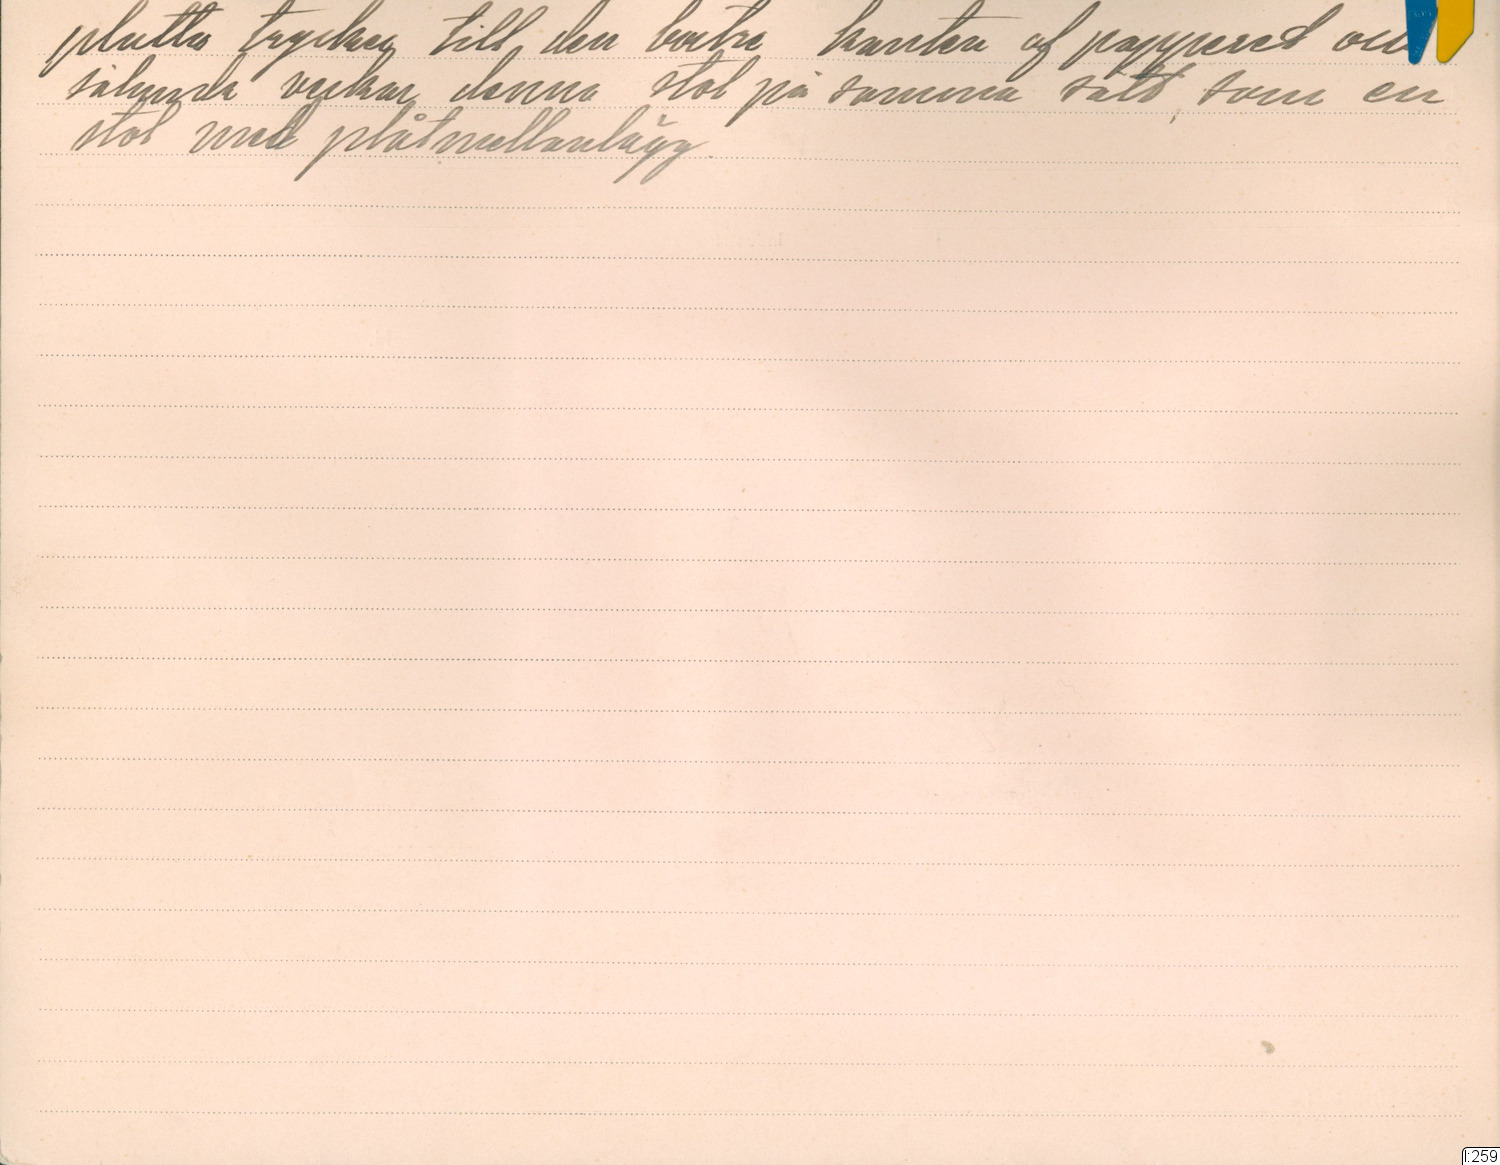 platta trycker till den bortre kanten af papperet och
sålunda verkar denna stol på samma sätt som en
stol med plåtmellanlägg.
I:259